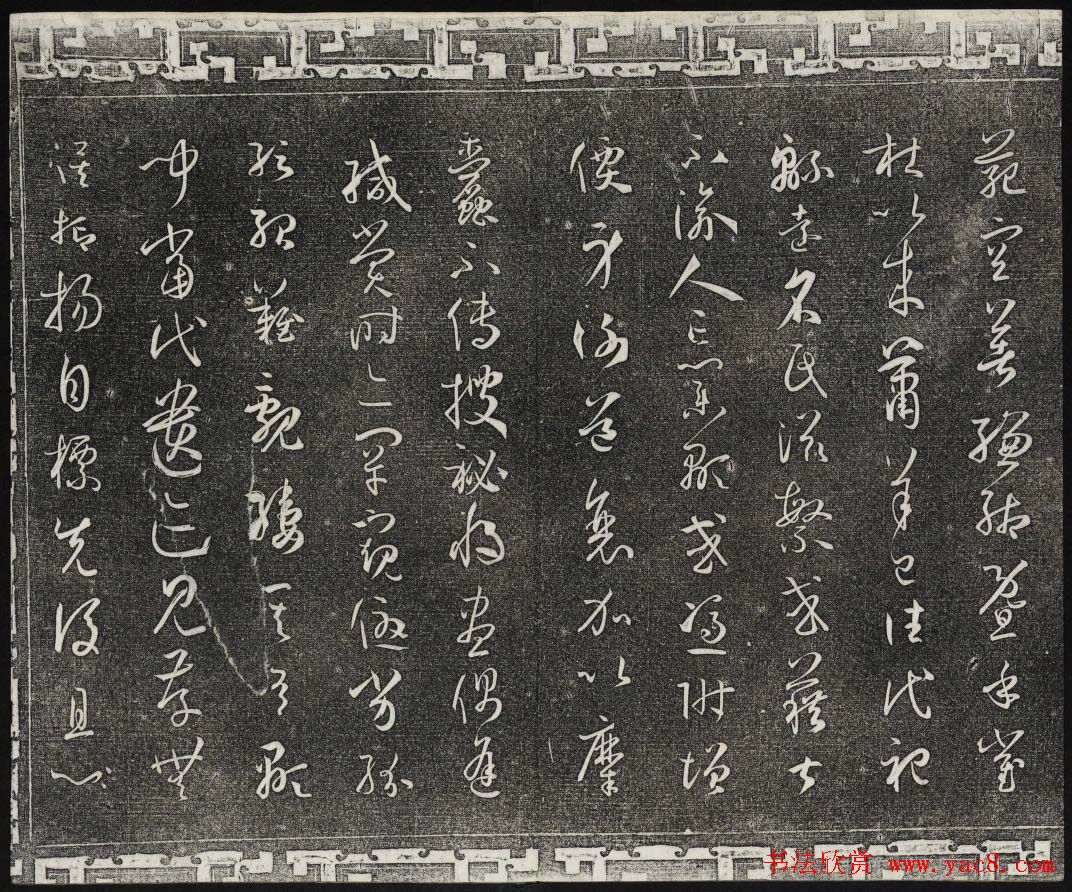 范空著縑緗暨乎崔
杜以來蕭羊已往代祀
緜遠名氏滋繁或藉甚
不渝人亡業顯或憑附增
價身謝道衰加以糜
蠹不傳搜秘將盡偶逢
緘賞時亦罕窺優劣紛
紜殆難覼縷其有顯
聞當代遺迹見存無
俟抑揚自標先後且六
书法欣赏 www.yac8.com